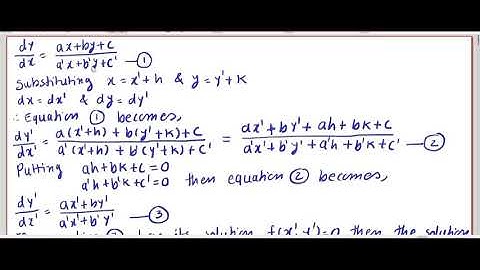 dy/dx = ax+by+c / a'x+b'y+c' — ①
Substituting x = x'+h & y = y'+k
dx = dx' & dy = dy'
∴ Equation ① becomes,
dy'/dx' = a(x'+h) + b(y'+k)+c / a'(x'+h) + b'(y'+k)+c' = ax'+by'+ah+bk+c / a'x'+b'y'+a'h+b'k+c' — ②
Putting ah+bk+c=0
a'h+b'k+c'=0 then equation ② becomes,
dy'/dx' = ax'+by' / a'x'+b'y' — ③
its solution f(x',y')=0 then the solution